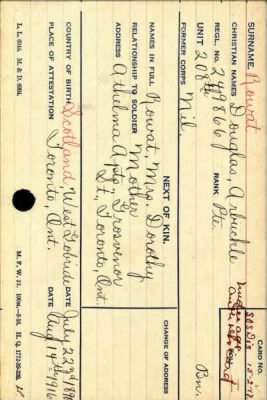 SURNAME Rowat
CHRISTIAN NAMES Douglas, Arbuckle
REGL. No. 249866 RANK Pte.
UNIT 208th Bn.
FORMER CORPS Mil.
CARD No.
SOS Dis 15-2-17
under age
NEXT OF KIN.
CHANGE OF ADDRESS
NAMES IN FULL Rowat, Mrs. Dorothy
RELATIONSHIP TO SOLDIER Mother
ADDRESS Athelma Apts, Grosvenor
St., Toronto, Ont.
COUNTRY OF BIRTH Scotland, West Kilbride DATE July 22nd 189
PLACE OF ATTESTATION Toronto, Ont. DATE Aug 14th 1916
L. L. M. & D.
M. F. W. 22. H. Q. 1772-39-339.